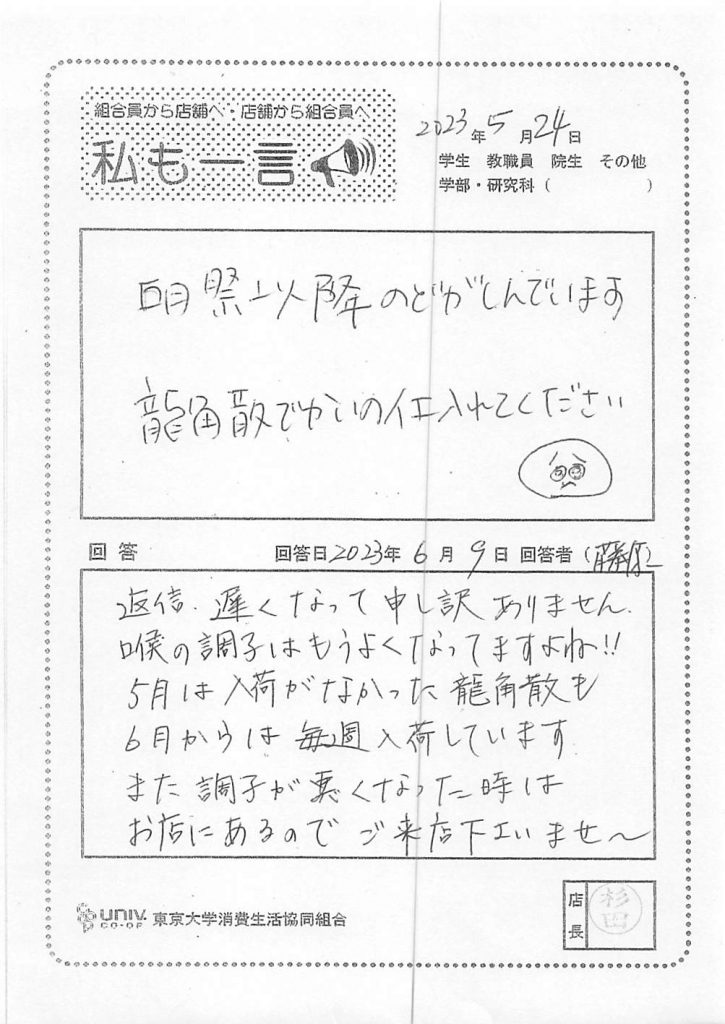 組合員から店舗へ・店舗から組合員へ
私も一言
2023年5月24日
学生 教職員 院生 その他
学部・研究科（ ）
明祭以降のどがしんでいます
龍角散でかいの仕入れてください
回答 回答日2023年6月9日 回答者（藤原）
返信、遅くなって申し訳ありません。
喉の調子はもうよくなってますよね!!
5月は入荷がなかった龍角散も
6月からは毎週入荷しています
また調子が悪くなった時は
お店にあるのでご来店下さいませ～
UNIV. CO-OP 東京大学消費生活協同組合
店長 杉田